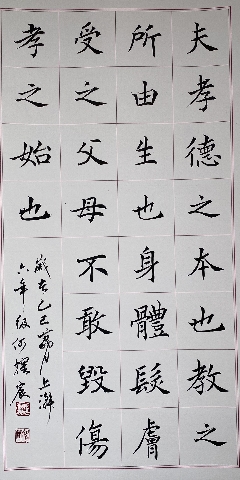 夫孝德之本也教之
所由生也身體髮膚
受之父母不敢毀傷
孝之始也
歲在乙巳月上澣
六年級何宸